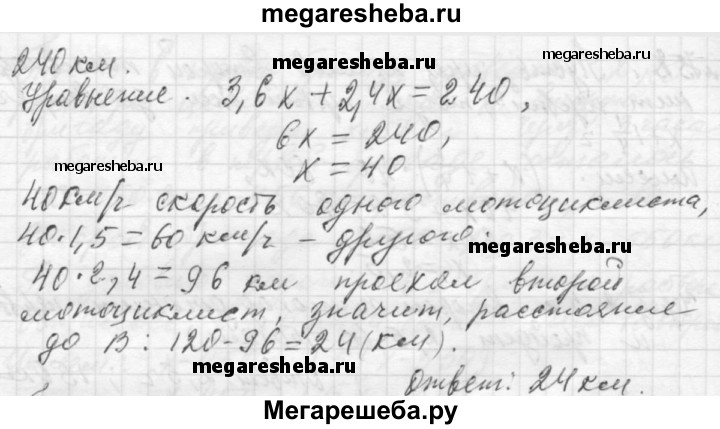 megaresheba.ru
240 км. megaresheba.ru megaresheba.ru
Уравнение. 3,6х + 2,4х = 240,
6х = 240,
megaresheba.ru х = 40 megaresheba.ru
40 км/г скорость одного мотоциклиста,
40·1,5=60 км/г – другого.
40·2,4 = 96 км проехал второй
мотоциклист, значит, расстояние
megaresheba.ru
до В: 120-96=24 (км).
megaresheba.ru
Ответ: 24 км.
Мегарешеба.ру